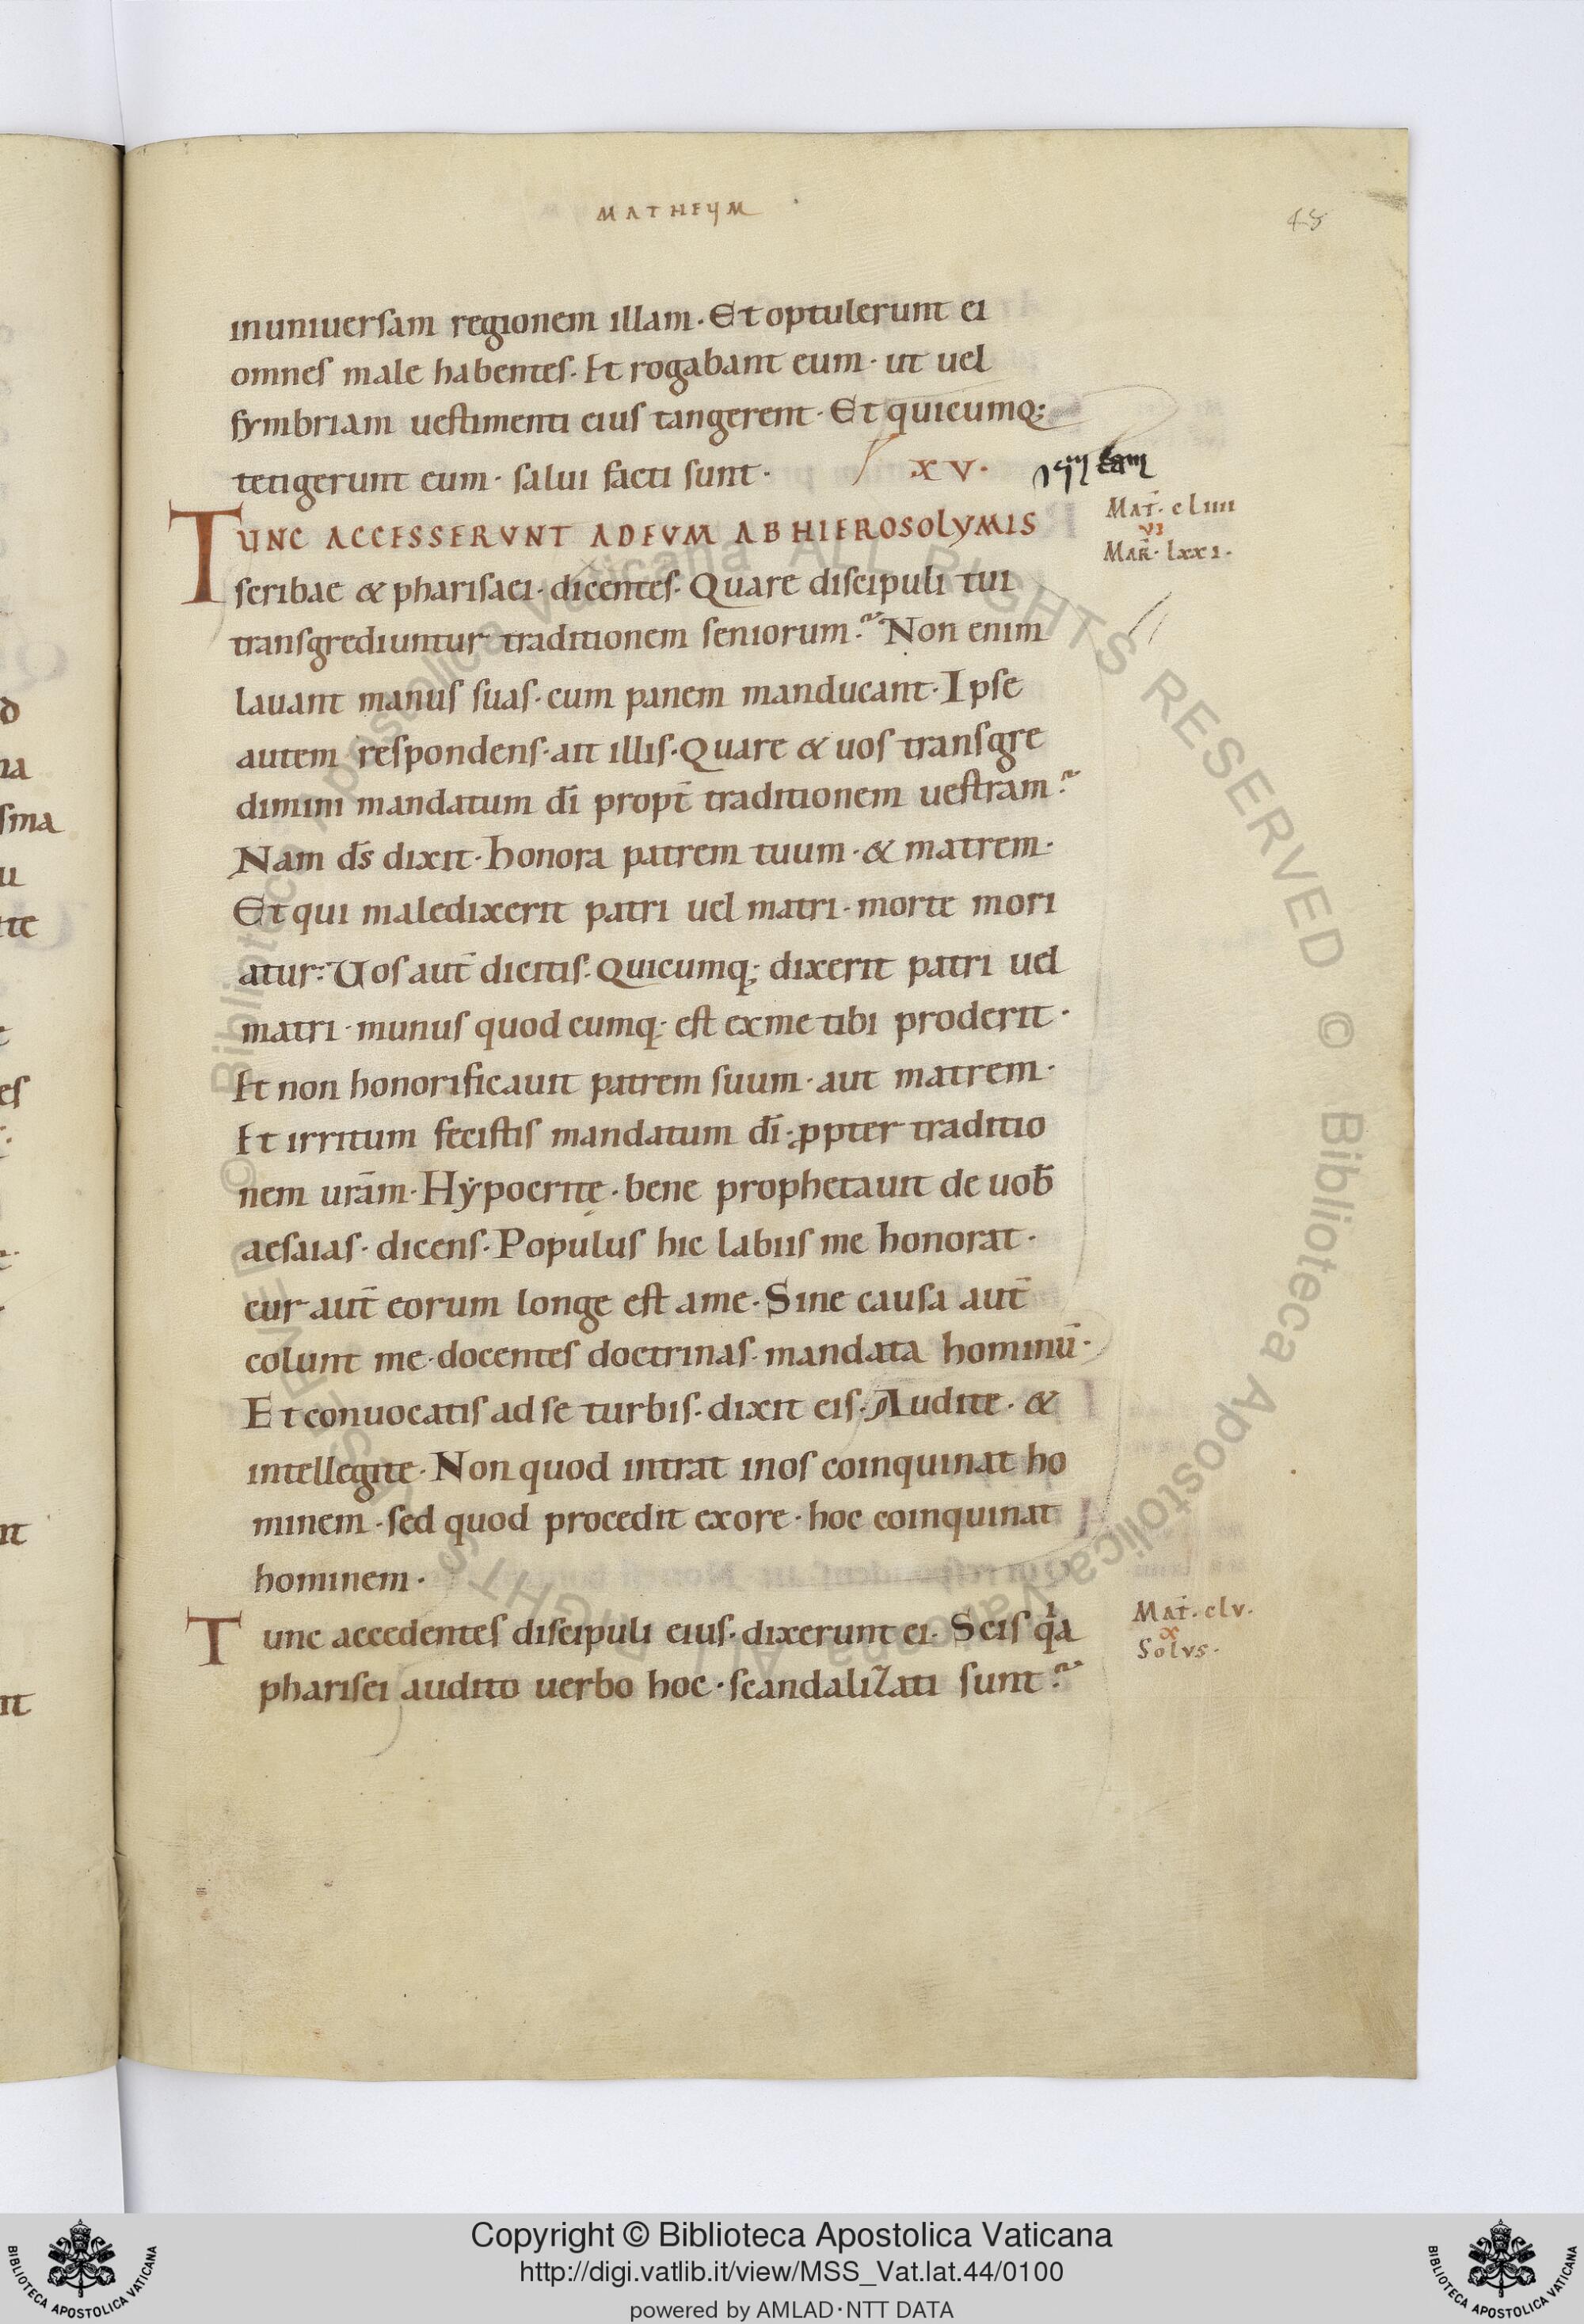 MATHEUM
45
inuniuersam regionem illam· Et optulerunt ei
omnes male habentes· Et rogabant eum· ut uel
fymbriam uestimenti eius tangerent· Et quicumq;
tetigerunt eum· salui facti sunt· XV·
TUNC ACCESSERVNT ADEVM AB HIEROSOLYMIS
Mat̄· cLIIII
VI
Mar̄· lxxI·
scribae & pharisaei· dicentes· Quare discipuli tui
transgrediuntur traditionem seniorum? Non enim
lauant manus suas· cum panem manducant· Ipse
autem respondens· ait illis· Quare & uos transgre
dimini mandatum dī propt̄ traditionem uestram?
Nam d̄s dixit· honora patrem tuum· & matrem·
Et qui maledixerit patri uel matri· morte mori
atur: Uos aut̄ dicitis· Quicumq; dixerit patri uel
matri· munus quod cumq· est exme tibi proderit·
Et non honorificauit patrem suum· aut matrem·
Et irritum fecistis mandatum dī· ꝓpter traditio
nem urām· Hẏpocritę· bene prophetauit de uob̄
aesaias· dicens· Populus hic labiis me honorat·
cur aut̄ eorum longe est ame· Sine causa aut̄
colunt me· docentes doctrinas· mandata hominū·
Et conuocatis ad se turbis· dixit eis· Audite· &
intellegite· Non quod intrat inos coinquinat ho
minem· sed quod procedit exore· hoc coinquinat
hominem·
Tunc accedentes discipuli eius· dixerunt ei· Scis qⁱa
Mat̄· clv·
x
Solvs·
pharisei audito uerbo hoc· scandalizati sunt?
d
na
sma
u
tte
es
nt
nt
© Biblioteca Apostolica Vaticana ALL RIGHTS RESERVED © Biblioteca Apostolica Vaticana ALL RIGHTS RESERVED
BIBLIOTECA APOSTOLICA VATICANA
Copyright © Biblioteca Apostolica Vaticana
http://digi.vatlib.it/view/MSS_Vat.lat.44/0100
powered by AMLAD·NTT DATA
BIBLIOTECA APOSTOLICA VATICANA